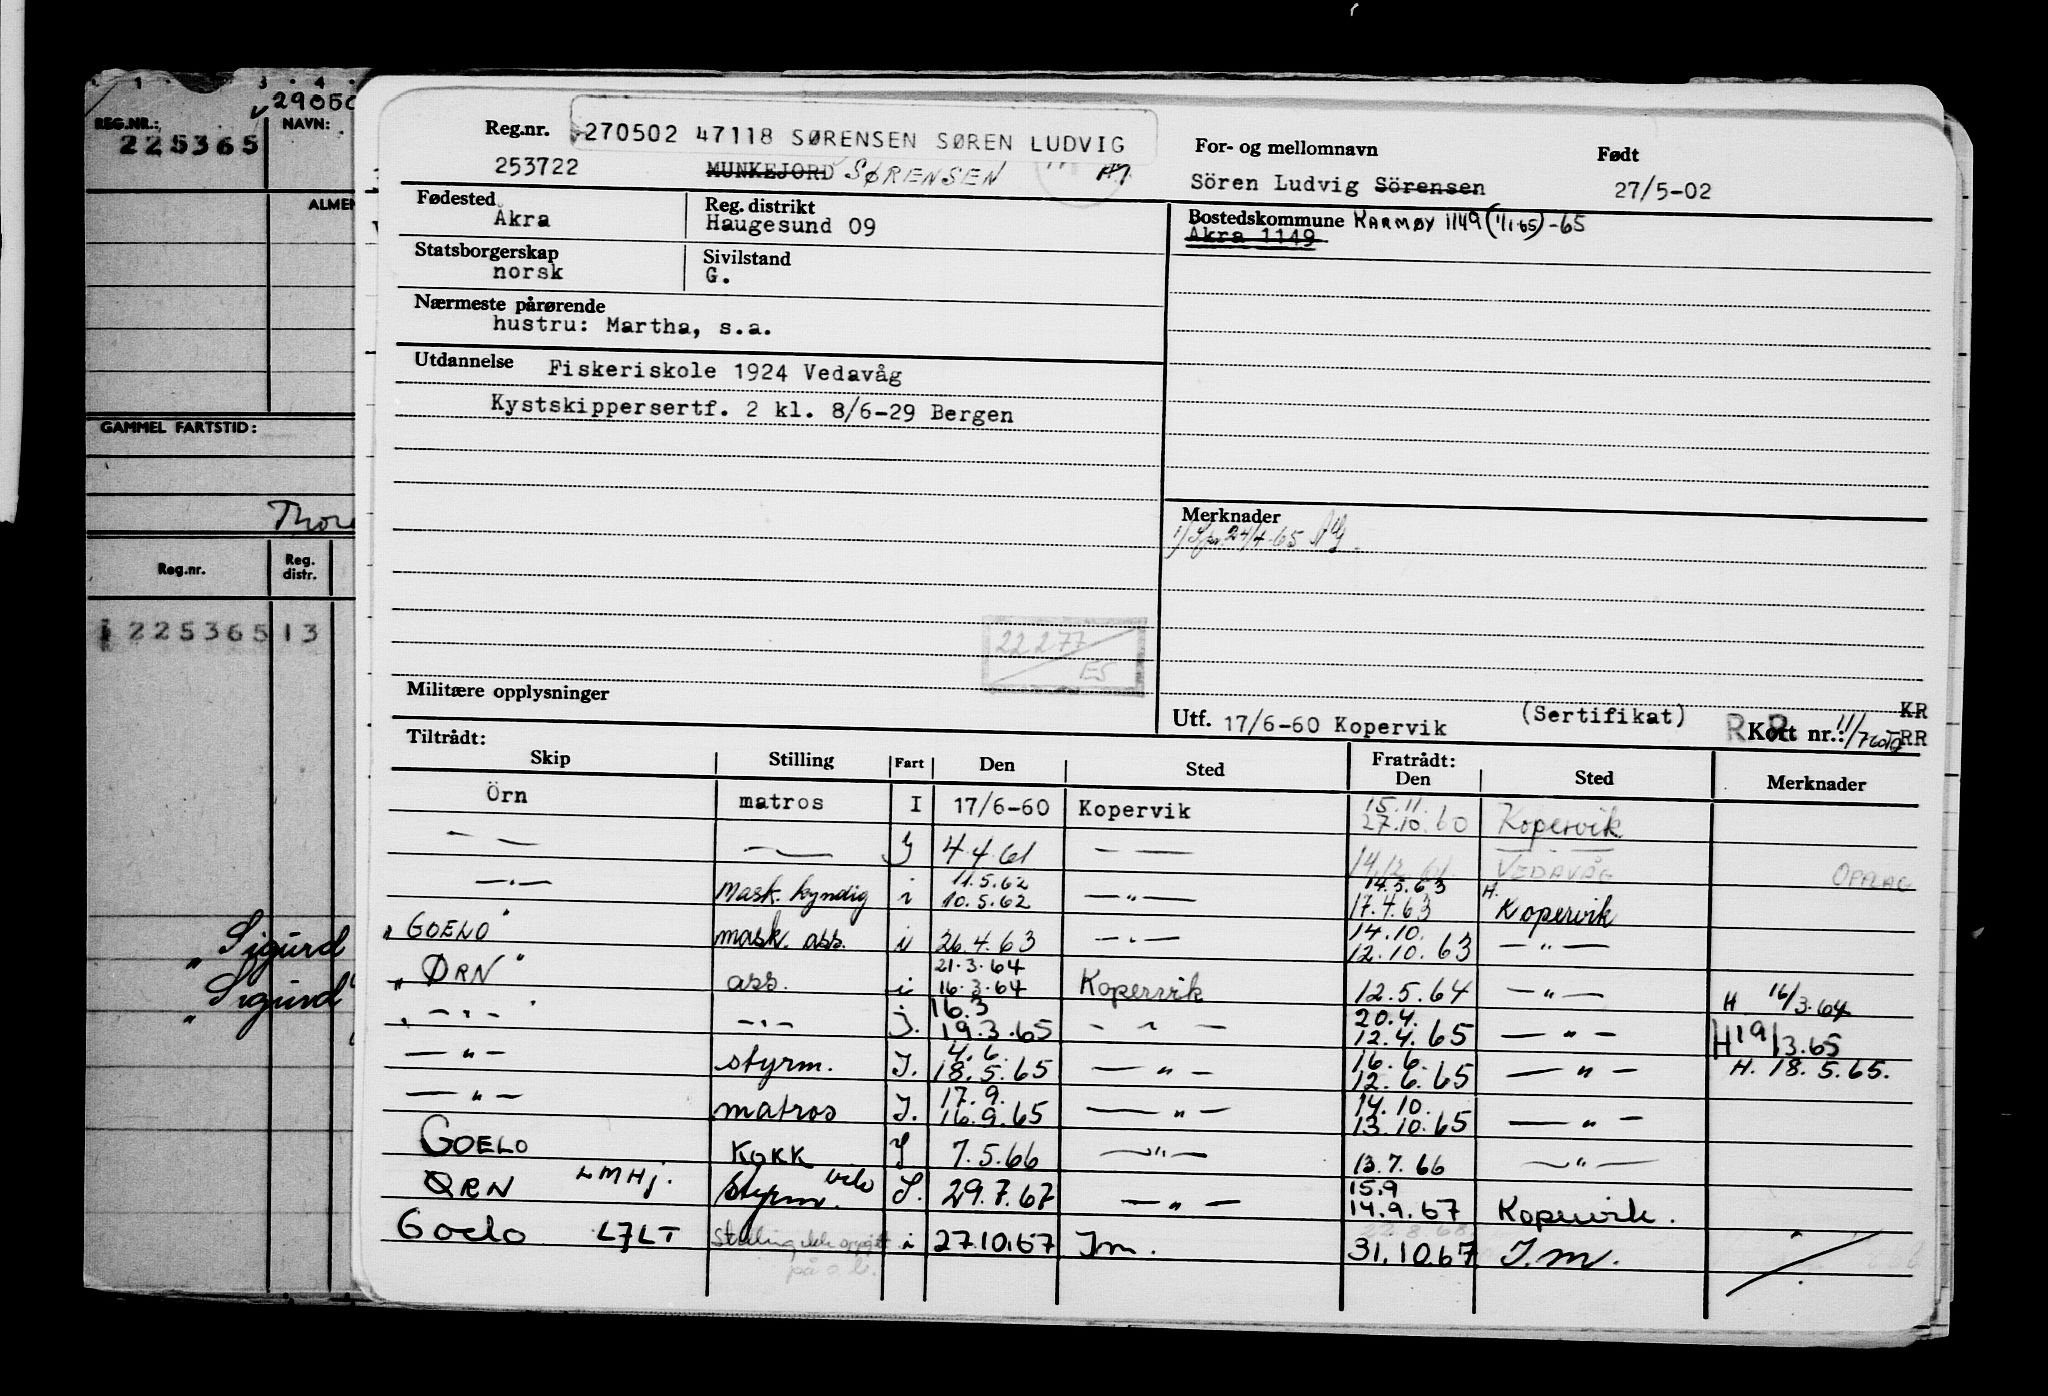 29050
REG.NR.: NAVN:
225365
ALMEN
GAMMEL FARTSTID:
Thor
Reg.nr. Reg. distr.
225365 13
"Sigurd
"Sigurd"
Reg.nr. 270502 47118 SØRENSEN SØREN LUDVIG
253722 MUNKEJORD SØRENSEN
For- og mellomnavn Født
Sören Ludvig Sörensen 27/5-02
Fødested Reg. distrikt
Åkra Haugesund 09
Statsborgerskap Sivilstand
norsk G.
Nærmeste pårørende
hustru: Martha, s.a.
Utdannelse Fiskeriskole 1924 Vedavåg
Kystskippersertf. 2 kl. 8/6-29 Bergen
22 2 77
ES
Militære opplysninger
Bostedskommune KARMØY 1149 (1/1-65)-65
Åkra 1149
Merknader
24/4-65
Utf. 17/6-60 Kopervik (Sertifikat) KR
Kott nr.: RR
Tiltrådt: Fratrådt:
Skip Stilling Fart Den Sted Den Sted Merknader
Örn matros I 17/6-60 Kopervik 15.11. 27.10.60 Kopervik
— — — — 4.4.61 — — 14.12.61 VEDAVÅG OPPLAG
— " — Mask. kyndig i 11.5.62 10.5.62 — " — 14.5.63 17.4.63 H. Kopervik
"GOELO" mask. ass. i 26.4.63 — " — 14.10. 12.10.63 — " —
"ØRN" ass. i 21.3.64 16.3.64 Kopervik 12.5.64 — " — H 16/3.64
— " — — " — j. 16.3 19.3.65 — " — 20.4. 12.4.65 — " — H 19/3.65
— " — styrm. I. 4.6. 18.5.65 — " — 16.6. 12.6.65 — " — H. 18.5.65.
— " — matros I. 17.9. 16.9.65 — " — 14.10. 13.10.65 — " —
GOELO KOKK I 7.5.66 — " — 13.7.66 — " —
ØRN LMHj. Styrm. I. 29.7.67 — " — 15.9 14.9.67 Kopervik.
Goelo LJLT Stilling ikke oppgitt i 27.10.67 I m. 31.10.67 I. m.